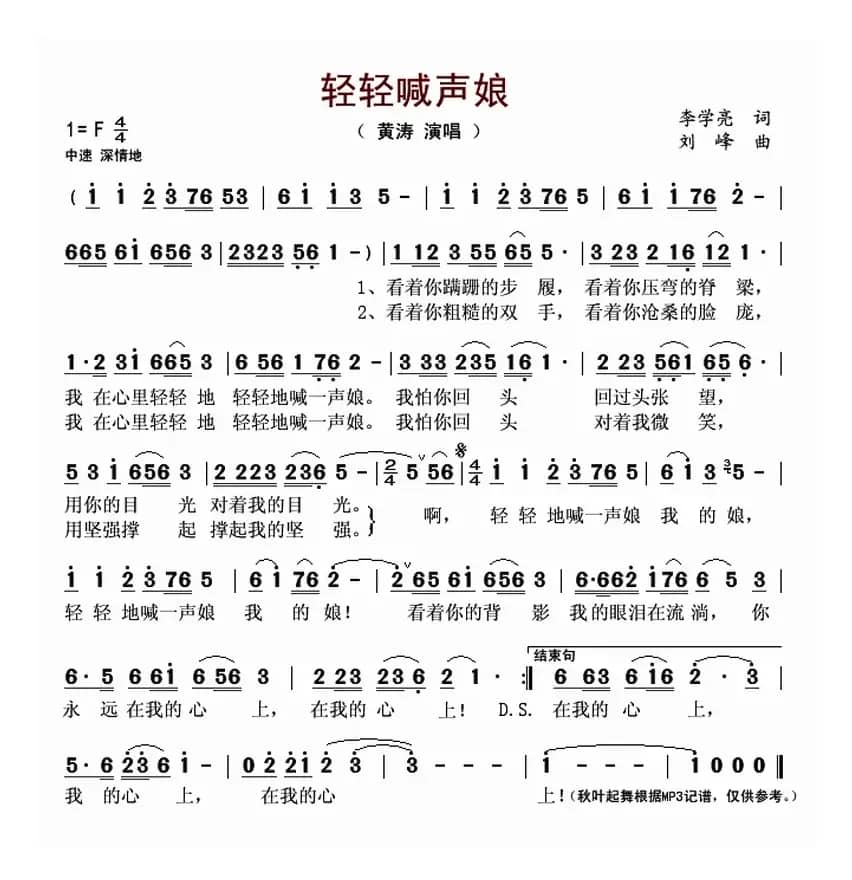 轻轻喊声娘
1= F 4/4
（ 黄涛 演唱 ）
李学亮 词
中速 深情地
刘 峰 曲
( i i 2 3 76 53 | 6 i i 3 5 - | i i 2 3 76 5 | 6 i i 76 2 - |
665 6i 656 3 | 2323 56 1 - ) | 1 12 3 55 65 5 · | 3 23 2 16 12 1 · |
1、看着你蹒跚的步 履， 看着你压弯的脊 梁，
2、看着你粗糙的双 手，看着你沧桑的脸 庞，
1 · 2 3i 665 3 | 6 56 1 76 2 - | 3 33 235 16 1 · | 2 23 561 65 6 · |
我 在心里轻轻 地 轻轻地喊一声娘。 我怕你回 头 回过头张 望，
我 在心里轻轻 地 轻轻地喊一声娘。 我怕你回 头 对着我微 笑，
5 3 i 656 3 | 2 223 236 5 - | 2/4 5 ∨ 56 | 4/4 i i 2 3 76 5 | 6 i 3 35 - |
用你的目 光 对着我的目 光。 啊， 轻 轻 地喊一声娘 我 的 娘，
用坚强撑 起 撑起我的坚 强。
i i 2 3 76 5 | 6 i 76 2 - | 2 ∨ 65 6i 656 3 | 6·662 i76 6 5 3 |
轻 轻 地喊一声娘 我 的 娘！ 看着你的背 影 我的眼泪在流 淌， 你
结束句
6 · 5 6 6i 6 56 3 | 2 23 23 6 2 1 · :‖ 6 63 6 i6 2 · 3 |
永 远 在我的 心 上， 在我的 心 上！ D.S. 在我的 心 上，
5 · 6 23 6 i - | 02 2i 2 3 | 3 - - - | i - - - | i 0 0 0 ‖
我 的心 上， 在我的心 上！（秋叶起舞根据MP3记谱，仅供参考。）